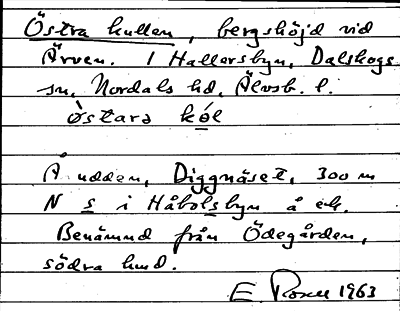 Östra kullen, bergshöjd vid
Ärven. 1 Hallersbyn, Dalskogs
sn, Nordals hd, Älvsb. l.
òstara kól
Å udden, Diggnäset, 300 m
N s i Håbolsbyn å ek.
Benämnd från Ödegården,
södra hmd.
E. Rosell 1963